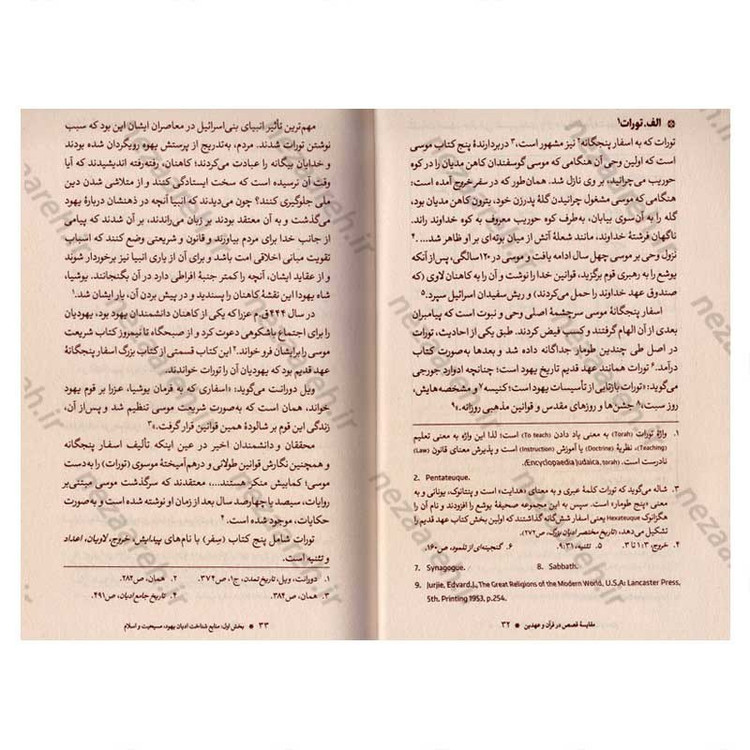 الف. تورات۱
تورات که به اسفار پنجگانه۲ نیز مشهور است،۳ دربردارندهٔ پنج کتاب موسی
است که اولین وحی آن هنگامی که موسی گوسفندان کاهن مدیان را در کوه
حوریب می‌چرانید، بر وی نازل شد. همان‌طور که در سفر خروج آمده است:
هنگامی که موسی مشغول چرانیدن گلهٔ پدرزن خود، یترون کاهن مدیان بود،
گله را به آن سوی بیابان، به‌طرف کوه حوریب معروف به کوه خداوند راند.
ناگهان فرشتهٔ خداوند، مانند شعلهٔ آتش از میان بوته‌ای بر او ظاهر شد....۴
نزول وحی بر موسی چهل سال ادامه یافت و موسی در ۱۲۰سالگی، پس از آنکه
یوشع را به رهبری قوم برگزید، قوانین خدا را نوشت و آن را به کاهنان لاوی (که
صندوق عهد خداوند را حمل می‌کردند) و ریش سفیدان اسرائیل سپرد.۵
اسفار پنجگانهٔ موسی سرچشمهٔ اصلی وحی و نبوت است که پیامبران
بعدی از آن الهام گرفتند و کسب فیض کردند. طبق یکی از احادیث، تورات
در اصل طی چندین طومار جداگانه داده شد و بعدها به‌صورت کتاب
درآمد.۶ تورات همانند عهد قدیم تاریخ یهود است؛ چنانچه ادوارد جورجی
می‌گوید: «تورات بازتابی از تأسیسات یهود است؛ کنیسه۷ و مشخصه‌هایش،
روز سبت،۸ جشن‌ها و روزهای مقدس و قوانین مذهبی روزانه.»۹
۱. واژهٔ تورات (Torah) به معنی یاد دادن (To teach) است؛ لذا این واژه به معنی تعلیم
(Teaching)، نظریهٔ (Doctrine) یا آموزش (Instruction) است و پذیرش معنای قانون (Law)
نادرست است. (Encyclopaedia Judaica, torah).
2. Pentateuque.
۳. شاله می‌گوید که تورات کلمهٔ عبری و به معنای «هدایت» است و پنتاتوک، یونانی و به
معنای «پنج طومار» است. سپس به این مجموعه صحیفهٔ یوشع را افزودند و نام آن را
هگزاتوک Hexateuque یعنی اسفار شش‌گانه گذاشتند که اولین بخش کتاب عهد قدیم را
تشکیل می‌دهد، (تاریخ مختصر ادیان بزرگ، ص۲۷۲).
۴. خروج، ۳:۱ تا ۳. ۵. تثنیه، ۳۱:۹. ۶. گنجینه‌ای از تلمود، ص۱۶۰.
7. Synagogue. 8. Sabbath.
9. Jurjie, Edvard.J., The Great Religions of the Modern World, U.S,A: Lancaster Press,
5th. Printing 1953, p.254.
مقایسهٔ قصص در قرآن و عهدین ۳۲
مهم‌ترین تأثیر انبیای بنی‌اسرائیل در معاصران ایشان این بود که سبب
نوشتن تورات شدند. مردم، به‌تدریج از پرستش یهوه رویگردان شده بودند
و خدایان بیگانه را عبادت می‌کردند؛ کاهنان، رفته‌رفته اندیشیدند که آیا
وقت آن نرسیده است که سخت ایستادگی کنند و از متلاشی شدن دین
ملی جلوگیری کنند؟ چون می‌دیدند که انبیا آنچه در ذهنشان دربارهٔ یهود
می‌گذشت و به آن معتقد بودند بر زبان می‌راندند، بر آن شدند که پیامی
از جانب خدا برای مردم بیاورند و قانون و شریعتی وضع کنند که اسباب
تقویت مبانی اخلاقی امت باشد و برای آن از یاری انبیا نیز برخوردار شوند
و از عقاید ایشان، آنچه را کمتر جنبهٔ افراطی دارد در آن بگنجانند. یوشیا،
شاه یهودا این نقشهٔ کاهنان را پسندید و در پیش بردن آن، یار ایشان شد.۱
در سال ۴۴۴ق.م عزرا که یکی از کاهنان دانشمندان یهود بود، یهودیان
را برای اجتماع باشکوهی دعوت کرد و از صبحگاه تا نیمروز کتاب شریعت
موسی را برایشان فرو خواند.۲ این کتاب قسمتی از کتاب بزرگ اسفار پنجگانهٔ
عهد قدیم بود که یهودیان آن را تورات خواندند.
ویل دورانت می‌گوید: «اسفاری که به فرمان یوشیا، عزرا بر قوم یهود
خواند، همان است که به‌صورت شریعت موسی تنظیم شد و پس از آن،
زندگی این قوم بر شالودهٔ همین قوانین قرار گرفت.»۳
محققان و دانشمندان اخیر در عین اینکه تألیف اسفار پنجگانه
و همچنین نگارش قوانین طولانی و درهم‌آمیختهٔ موسوی (تورات) را به دست
موسی؛ کمابیش منکر هستند...، معتقدند که سرگذشت موسی مبتنی بر
روایات، سیصد یا چهارصد سال بعد از زمان او نوشته شده است و به‌صورت
حکایات، موجود شده.۴
تورات شامل پنج کتاب (سِفر) با نام‌های پیدایش، خروج، لاویان، اعداد
و تثنیه است.
۱. دورانت، ویل، تاریخ تمدن، ج۱، ص۳۷۴. ۲. همان، ص۲۸۲.
۳. همان، ص۳۸۴. ۴. تاریخ جامع ادیان، ص۴۹۱.
بخش اول: منابع شناخت ادیان یهود، مسیحیت و اسلام ۳۳
nezaareh.ir